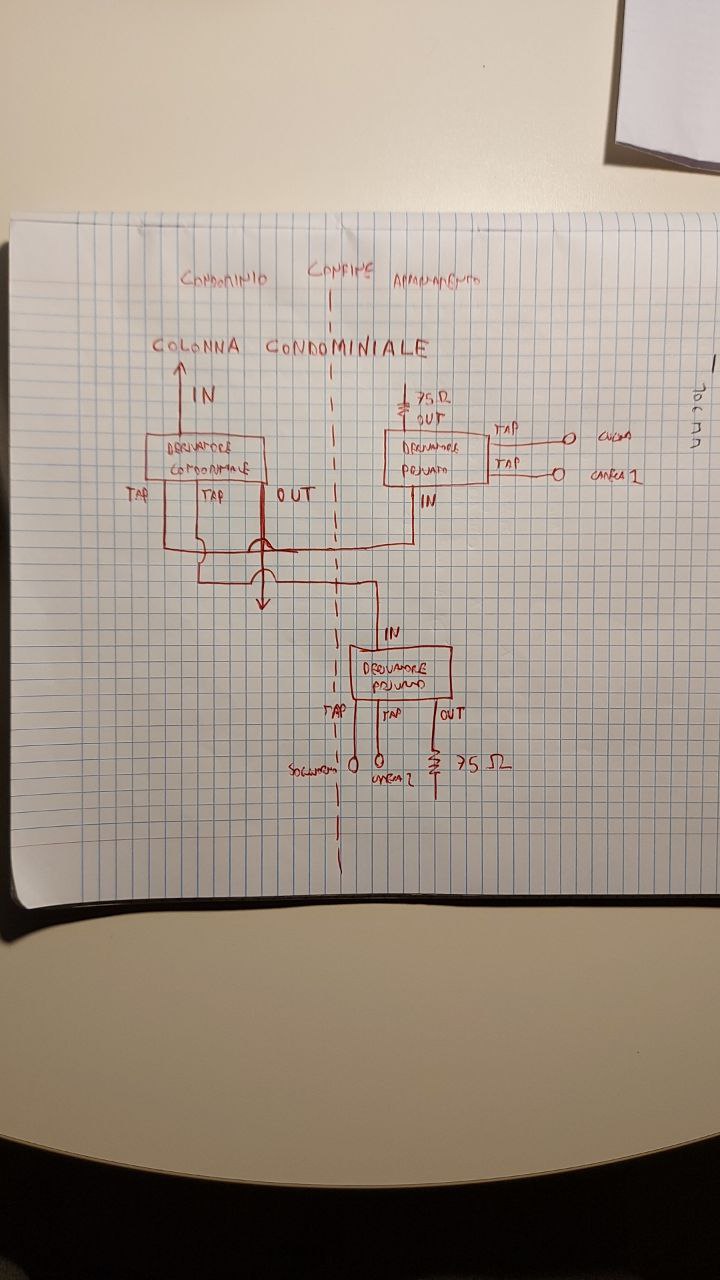 CONDOMINIO CONFINE APPARTAMENTO
COLONNA CONDOMINIALE
IN
75 Ω
OUT
DERIVATORE
CONDOMINIALE
TAP
TAP
OUT
DERIVATORE
PRIVATO
TAP
CUCINA
TAP
CAMERA 1
IN
IN
DERIVATORE
PRIVATO
TAP
TAP
OUT
SOGGIORNO
CAMERA 2
75 Ω